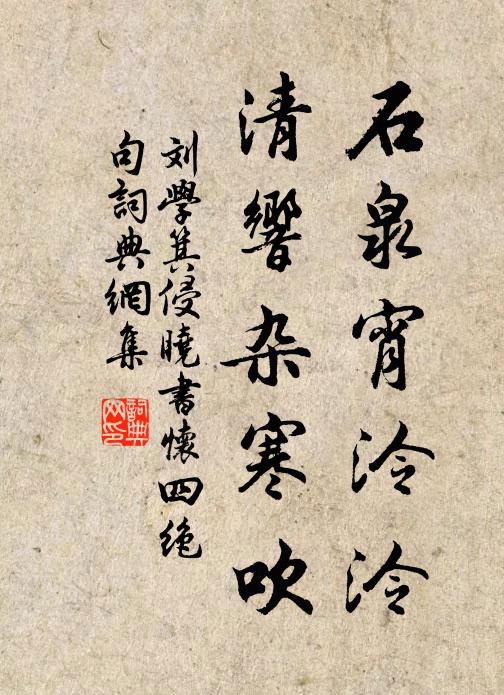 石泉宵泠泠
清響杂寒吹
刘學箕侵曉書懷四絶
句詞典網集
詞典
网印